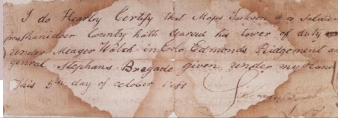 I do Hearby Certify that Moses Jackson is a Soldier
from Shanidoer County hath Sarved his tower of duty
under Meager Welch in Colo Edmonds Ridgement and
genral Stephans Bregade given under my Hand
This 5th day of october 1781